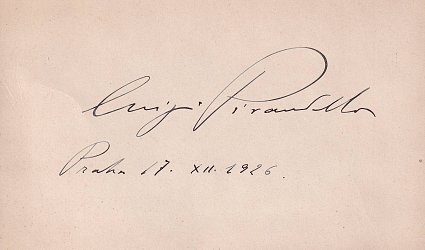 Luigi Pirandello
Praha 17. XII. 1926.